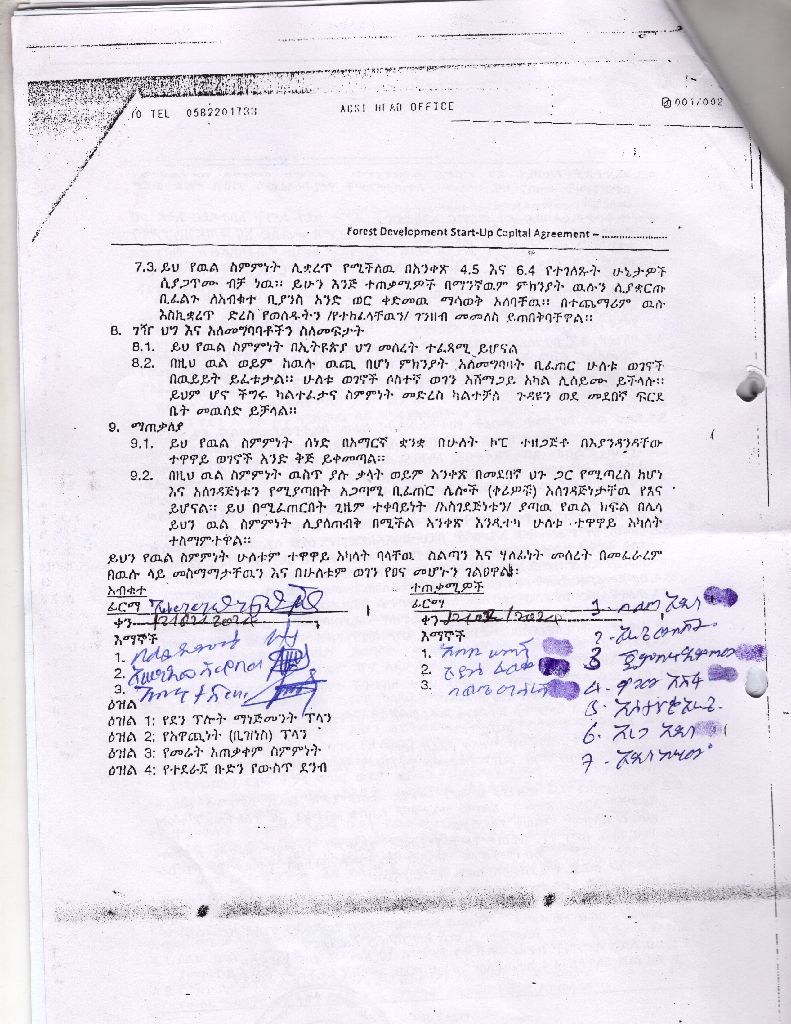 TEL 0582201733 ACSI HEAD OFFICE 001/002
Forest Development Start-Up Capital Agreement – ......................
7.3. ይህ የዉል ስምምነት ሊቋረጥ የሚችለዉ በአንቀጽ 4.5 እና 6.4 የተገለጹት ሁኔታዎች
ሲያጋጥሙ ብቻ ነዉ። ይሁን እንጅ ተጠቃሚዎች በማንኛዉም ምክንያት ዉሉን ሲያቋርጡ
ቢፈልጉ ለአብቁተ ቢያንስ አንድ ወር ቀድመዉ ማሳወቅ አለባቸዉ። በተጨማሪም ዉሉ
እስኪቋረጥ ድረስ የወሰዱትን /የተከፈላቸዉን/ ገንዘብ መመለስ ይጠበቅባቸዋል።
8. ገዥ ህግ እና አለመግባባቶችን ስለመፍታት
8.1. ይህ የዉል ስምምነት በኢትዮጵያ ህግ መሰረት ተፈጻሚ ይሆናል
8.2. በዚህ ዉል ወይም ከዉሉ ዉጪ በሆነ ምክንያት አለመግባባት ቢፈጠር ሁለቱ ወገኖች
በዉይይት ይፈቱታል። ሁለቱ ወገኖች ሶስተኛ ወገን አሸማጋይ አካል ሊሰይሙ ይችላሉ።
ይህም ሆኖ ችግሩ ካልተፈታና ስምምነት መድረስ ካልተቻለ ጉዳዩን ወደ መደበኛ ፍርድ
ቤት መዉሰድ ይቻላል።
9. ማጠቃለያ
9.1. ይህ የዉል ስምምነት ሰነድ በአማርኛ ቋንቋ በሁለት ኮፒ ተዘጋጅቶ በእያንዳንዳቸው
ተዋዋይ ወገኖች አንድ ቅጅ ይቀመጣል።
9.2. በዚህ ዉል ስምምነት ዉስጥ ያሉ ቃላት ወይም አንቀጽ በመደበኛ ህጉ ጋር የሚጣረስ ከሆነ
እና አስገዳጅነቱን የሚያጣበት አጋጣሚ ቢፈጠር ሌሎች (ቀሪዎቹ) አስገዳጅነታቸዉ የጸና
ይሆናል። ይህ በሚፈጠርበት ጊዜም ተቀባይነት /አስገደጅነቱን/ ያጣዉ የዉል ክፍል በሌላ
ይህን ዉል ስምምነት ሊያስጠብቅ በሚችል አንቀጽ እንዲተካ ሁለቱ ተዋዋይ አካላት
ተስማምተዋል።
ይህን የዉል ስምምነት ሁለቱም ተዋዋይ አካላት ባላቸዉ ስልጣን እና ሃላፊነት መሰረት በመፈራረም
በዉሉ ላይ መስማማታቸዉን እና በሁለቱም ወገን የፀና መሆኑን ገልፀዋል፡
አብቁተ
ፊርማ
ቀን
እማኞች
1.
2.
3.
ተጠቃሚዎች
ፊርማ
ቀን
እማኞች
1.
2.
3.
1.
2
3
4.
5.
6.
7
ዕዝል
ዕዝል 1: የደን ፕሎት ማነጅመንት ፕላን
ዕዝል 2: የአዋጪነት (ቢዝነስ) ፕላን
ዕዝል 3: የመሬት አጠቃቀም ስምምነት
ዕዝል 4: የተደራጀ ቡድን የውስጥ ደንብ